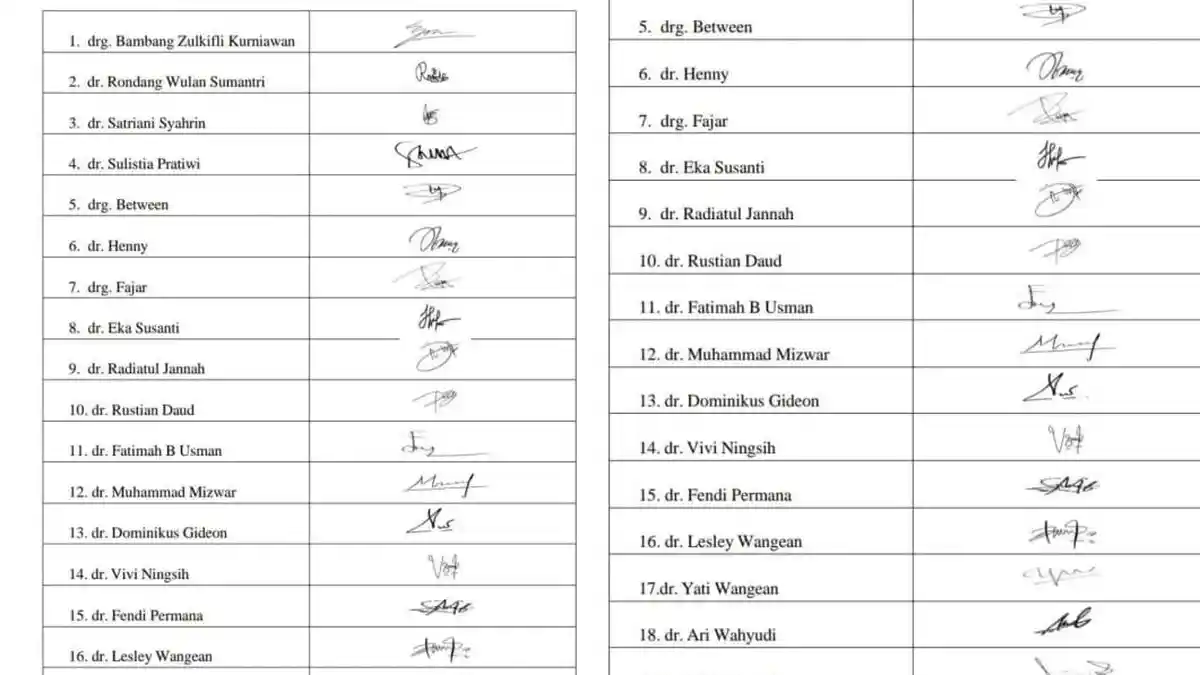 1. drg. Bambang Zulkifli Kurniawan
2. dr. Rondang Wulan Sumantri
3. dr. Satriani Syahrin
4. dr. Sulistia Pratiwi
5. drg. Between
6. dr. Henny
7. drg. Fajar
8. dr. Eka Susanti
9. dr. Radiatul Jannah
10. dr. Rustian Daud
11. dr. Fatimah B Usman
12. dr. Muhammad Mizwar
13. dr. Dominikus Gideon
14. dr. Vivi Ningsih
15. dr. Fendi Permana
16. dr. Lesley Wangean
5. drg. Between
6. dr. Henny
7. drg. Fajar
8. dr. Eka Susanti
9. dr. Radiatul Jannah
10. dr. Rustian Daud
11. dr. Fatimah B Usman
12. dr. Muhammad Mizwar
13. dr. Dominikus Gideon
14. dr. Vivi Ningsih
15. dr. Fendi Permana
16. dr. Lesley Wangean
17.dr. Yati Wangean
18. dr. Ari Wahyudi